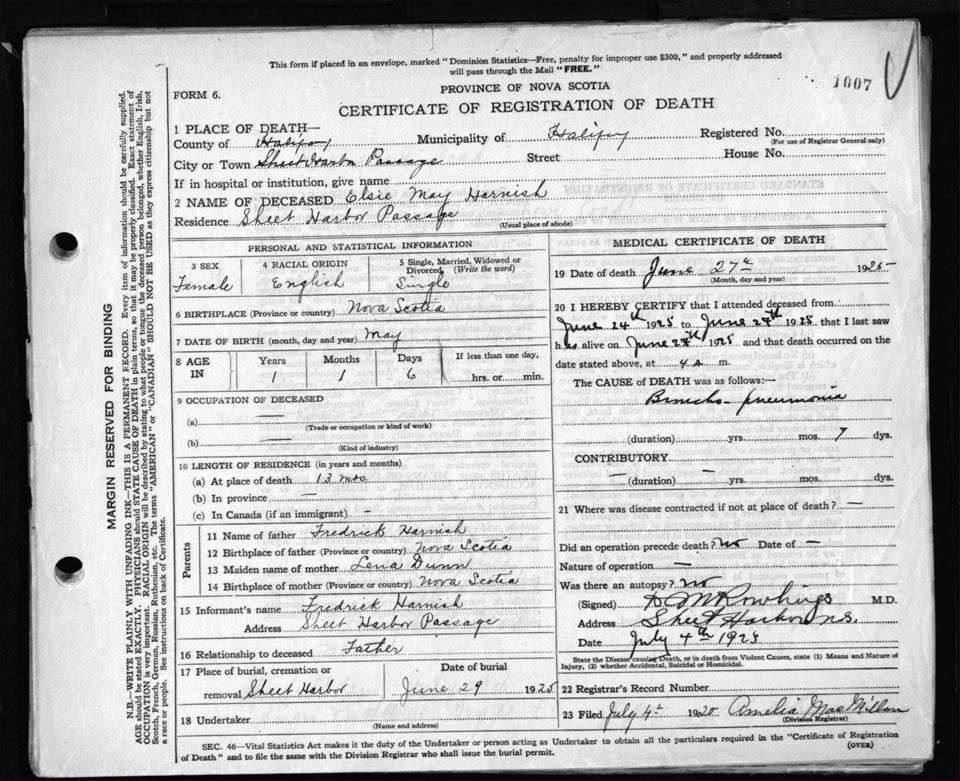 This form if placed in an envelope, marked "Dominion Statistics—Free, penalty for improper use $300," and properly addressed
will pass through the Mail "FREE."
1007
PROVINCE OF NOVA SCOTIA
FORM 6.
CERTIFICATE OF REGISTRATION OF DEATH
MARGIN RESERVED FOR BINDING
N.B.—WRITE PLAINLY WITH UNFADING INK—THIS IS A PERMANENT RECORD. Every item of information should be carefully supplied.
AGE should be stated EXACTLY. PHYSICIANS should STATE CAUSE OF DEATH in plain terms, so that it may be properly classified. Exact statement of
OCCUPATION is very important. RACIAL ORIGIN will be described by stating to what people or tongue the deceased person belonged, whether English, Irish,
Scotch, French, German, Russian, Ruthenian, etc. The terms "AMERICAN" or "CANADIAN" SHOULD NOT BE USED as they express citizenship but not
a race or people. See instructions on back of Certificate.
1 PLACE OF DEATH—
County of Halifax Municipality of Halifax Registered No.
(For use of Registrar General only)
City or Town Sheet Harbor Passage Street House No.
If in hospital or institution, give name
2 NAME OF DECEASED Elsie May Harnish
Residence Sheet Harbor Passage
(Usual place of abode)
PERSONAL AND STATISTICAL INFORMATION
3 SEX
Female
4 RACIAL ORIGIN
English
5 Single, Married, Widowed or
Divorced (Write the word)
Single
6 BIRTHPLACE (Province or country) Nova Scotia
7 DATE OF BIRTH (month, day and year) May
8 AGE IN
Years Months Days If less than one day,
1 1 6 hrs. or min.
9 OCCUPATION OF DECEASED
(a) —
(Trade or occupation or kind of work)
(b) —
(Kind of industry)
10 LENGTH OF RESIDENCE (in years and months)
(a) At place of death 13 mos
(b) In province —
(c) In Canada (if an immigrant) —
Parents
11 Name of father Fredrick Harnish
12 Birthplace of father (Province or country) Nova Scotia
13 Maiden name of mother Lena Dunn
14 Birthplace of mother (Province or country) Nova Scotia
15 Informant's name Fredrick Harnish
Address Sheet Harbor Passage
16 Relationship to deceased Father
17 Place of burial, cremation or Date of burial
removal Sheet Harbor June 29 1925
18 Undertaker
(Name and address)
MEDICAL CERTIFICATE OF DEATH
19 Date of death June 27th 1925
(Month, day and year)
20 I HEREBY CERTIFY that I attended deceased from
June 24th 1925 to June 27th 1925, that I last saw
her alive on June 1925 and that death occurred on the
date stated above, at 4 a. m.
The CAUSE OF DEATH was as follows:—
Broncho-pneumonia
(duration) yrs. mos. 7 dys.
CONTRIBUTORY
— (duration) — yrs. mos. dys.
21 Where was disease contracted if not at place of death? —
Did an operation precede death? no Date of —
Nature of operation —
Was there an autopsy? no
(Signed) D M Rowlings M.D.
Address Sheet Harbor N.S.
Date July 4th 1925
State the Disease causing Death, or in death from Violent Causes, state (1) Means and Nature of
Injury, (2) whether Accidental, Suicidal or Homicidal.
22 Registrar's Record Number
23 Filed July 4th 1925 Amelia MacMillan
(Division Registrar)
SEC. 46—Vital Statistics Act makes it the duty of the Undertaker or person acting as Undertaker to obtain all the particulars required in the "Certificate of Registration
of Death" and to file the same with the Division Registrar who shall issue the burial permit.
(OVER)